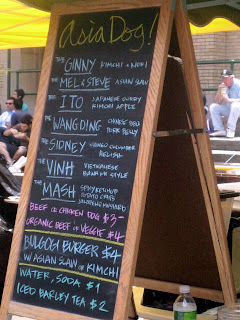 Asia Dog!
THE GINNY KIMCHI & NORI
THE MEL & STEVE ASIAN SLAW
THE ITO JAPANESE CURRY
KIMCHI APPLE
THE WANGDING CHINESE BBQ
PORK BELLY
THE SIDNEY MANGO CUCUMBER
RELISH
THE VINH VIETNAMESE
BAHN MI STYLE
THE MASH SPICY KETCHUP
POTATO CHIPS
JALAPENO MUSTARD
BEEF OR CHICKEN DOG $3-
ORGANIC BEEF OR VEGGIE $4
BULGOGI BURGER $4
W/ ASIAN SLAW OR KIMCHI
WATER, SODA $1
ICED BARLEY TEA $2